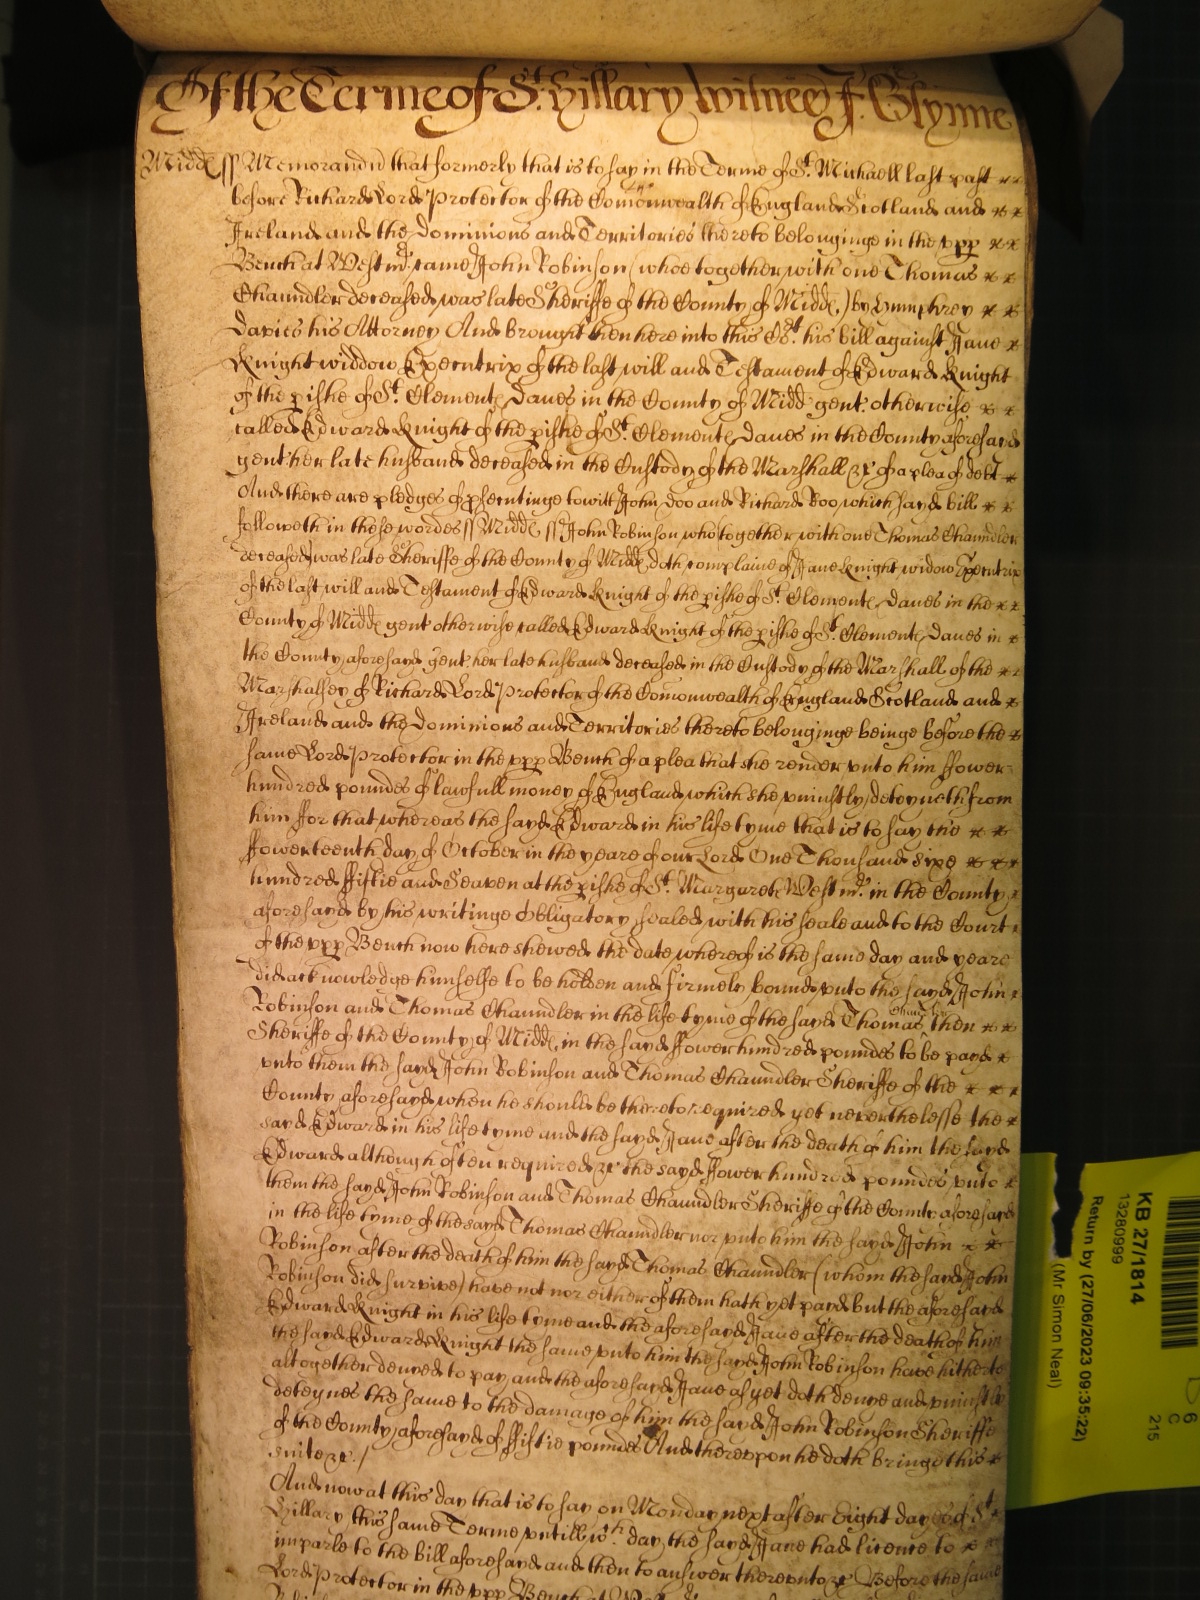 Of the Terme of St. Hillary Witnes J. Glynne
Midd ss Memorandu that formerly that is to say in the Terme of St. Michaell last past
before Richard Lord Protector of the Comonwealth of England Scotland and
Ireland and the Dominions and Territories thereto belonginge in the upp
Bench at Westmr. came John Robinson (whoe together with one Thomas
Chaundler deceased was late Sheriffe of the County of Midd.) by Humphrey
Davies his Attorney And brought then here into this Cort. his bill against Jane
Knight widdow Executrix of the last will and Testament of Edward Knight
of the pishe of St. Clement Danes in the County of Midd gent. otherwise
called Edward Knight of the pishe of St. Clement Danes in the County aforesayd
gent her late husband deceased in the Custody of the Marshall &c of a plea of debt
And there are pledges of psecutinge towitt John Doo and Richard Roo, which sayd bill
followeth in these wordes ss Midd ss John Robinson who together with one Thomas Chaundler
deceased was late Sheriffe of the County of Midd doth complaine of Jane Knight widow Executrix
of the last will and Testament of Edward Knight of the pishe of St. Clement Danes in the
County of Midd gent otherwise called Edward Knight of the pishe of St. Clement Danes in
the County aforesayd gent. her late husband deceased in the Custody of the Marshall of the
Marshalsey of Richard Lord Protector of the Comonwealth of England Scotland and
Ireland and the Dominions and Territories thereto belonginge beinge before the
same Lord Protector in the upp Bench of a plea that she render unto him ffower
hundred poundes of lawfull money of England which she uniustly deteyneth from
him ffor that whereas the sayd Edward in his life tyme that is to say the
ffowerteenth day of October in the yeare of our Lord One Thousand sixe
hundred ffiftie and Seaven at the pishe of St. Margarett Westmr. in the County
aforesayd by his writinge obligatory sealed with his seale and to the Court
of the upp Bench now here shewed the date whereof is the same day and yeare
did acknowledge himselfe to be holden and firmely bound unto the sayd John
Robinson and Thomas Chaundler in the life tyme of the sayd Thomas Chaundler then
Sheriffe of the County of Midd. in the sayd ffower hundred poundes to be payd
unto them the sayd John Robinson and Thomas Chaundler Sheriffe of the
County aforesayd when he should be thereto required yet neverthelesse the
sayd Edward in his life tyme and the sayd Jane after the death of him the sayd
Edward although often required &c the sayd ffower hundred poundes unto
them the sayd John Robinson and Thomas Chaundler Sheriffe of the County aforesayd
in the life tyme of the sayd Thomas Chaundler nor unto him the sayd John
Robinson after the death of him the sayd Thomas Chaundler (whom the sayd John
Robinson did survive) have not nor either of them hath yet payd but the aforesayd
Edward Knight in his life tyme and the aforesayd Jane after the death of him
the sayd Edward Knight the same unto him the sayd John Robinson have hitherto
altogether denyed to pay and the aforesayd Jane as yet doth denye and uniustly
deteynes the same to the damage of him the sayd John Robinson Sheriffe
of the County aforesayd of ffiftie poundes And thereupon he doth bringe this
suite &c./
And now at this day that is to say on Monday next after Eight dayes of St.
Hillary this same Terme untill wch. day the sayd Jane had licence to
imparle to the bill aforesayd and then to answer thereunto &c Before the same
Lord Protector in the upp Bench at
KB 27/1814
13280999
Return by (27/06/2023 09:35:22)
(Mr Simon Neal)
6
C
215